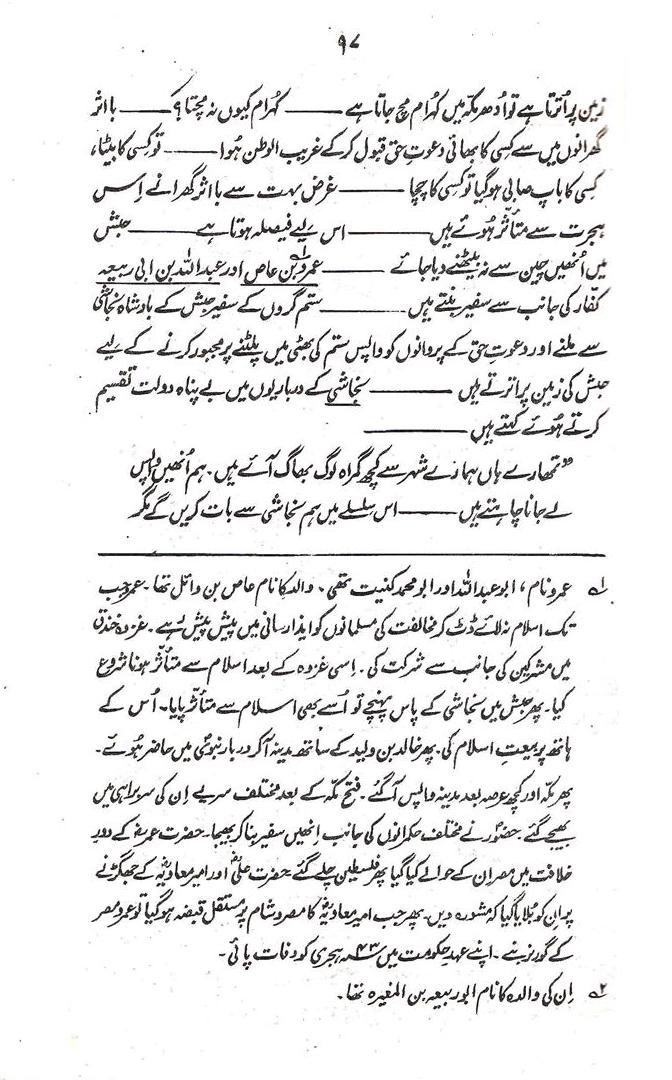 ۹۷
زمین پر اُترتا ہے تو اُدھر مکّہ میں کہُرام مچ جاتا ہے ——— کہُرام کیوں نہ مچتا؟ ——— با اثر
گھرانوں میں سے کسی کا بھائی دعوتِ حق قبول کر کے غریب الوطن ہُوا ——— تو کسی کا بیٹا،
کسی کا باپ صابی ہو گیا تو کسی کا چچا ——— غرض بہت سے با اثر گھرانے اِس
ہجرت سے متاثّر ہُوئے ہیں ——— اس لیے فیصلہ ہوتا ہے ——— حبش
میں اُنھیں چین سے نہ بیٹھنے دیا جائے ——— عمرو ؂۱ بن عاص اور عبداللہ بن ابی ربیعہ ؂۲
کفّار کی جانب سے سفیر بنتے ہیں ——— ستم گروں کے سفیر حبش کے بادشاہ نجاشی
سے ملنے اور دعوتِ حق کے پروانوں کو واپس ستم کی بھٹی میں پلٹنے پر مجبور کرنے کے لیے
حبش کی زمین پر اترتے ہیں ——— نجاشی کے درباریوں میں بے پناہ دولت تقسیم
کرتے ہُوئے کہتے ہیں ———
”تمھارے ہاں ہمارے شہر سے کچھ گمراہ لوگ بھاگ آئے ہیں۔ ہم اُنھیں واپس
لے جانا چاہتے ہیں ——— اس سلسلے میں ہم نجاشی سے بات کریں گے مگر
؂۱ عمرو نام، ابو عبداللہ اور ابو محمد کنیت تھی۔ والد کا نام عاص بن وائل تھا۔ عمرو جب
تک اسلام نہ لائے ڈٹ کر مخالفت کی مسلمانوں کو ایذا رسانی میں پیش پیش رہے۔ غزوہ خندق
میں مشرکین کی جانب سے شرکت کی۔ اِسی غزوہ کے بعد اسلام سے متاثّر ہونا شروع
کیا۔ پھر حبش میں نجاشی کے پاس پہنچے تو اُسے بھی اسلام سے متاثّر پایا۔ اُس کے
ہاتھ پر بیعتِ اسلام کی۔ پھر خالد بن ولید کے ساتھ مدینہ آ کر دربارِ نبویؐ میں حاضر ہُوئے۔
پھر مکّہ اور کچھ عرصہ بعد مدینہ واپس آ گئے۔ فتح مکّہ کے بعد مختلف سریے اِن کی سربراہی میں
بھیجے گئے۔ حضورؐ نے مختلف حکمرانوں کی جانب اِنھیں سفیر بنا کر بھیجا۔ حضرت عمرؓ کے دورِ
خلافت میں مصر ان کے حوالے کیا گیا پھر فلسطین چلے گئے حضرت علیؓ اور امیر معاویہؓ کے جھگڑنے
پر ان کو بُلایا گیا کہ مشورہ دیں۔ پھر جب امیر معاویہؓ کا مصر و شام پر مستقل قبضہ ہو گیا تو عمرو مصر
کے گورنر بنے۔ اپنے عہدِ حکومت میں ۴۳ ہجری کو وفات پائی۔
؂۲ اِن کی والدہ کا نام ابو ربیعہ بن المغیرہ تھا۔